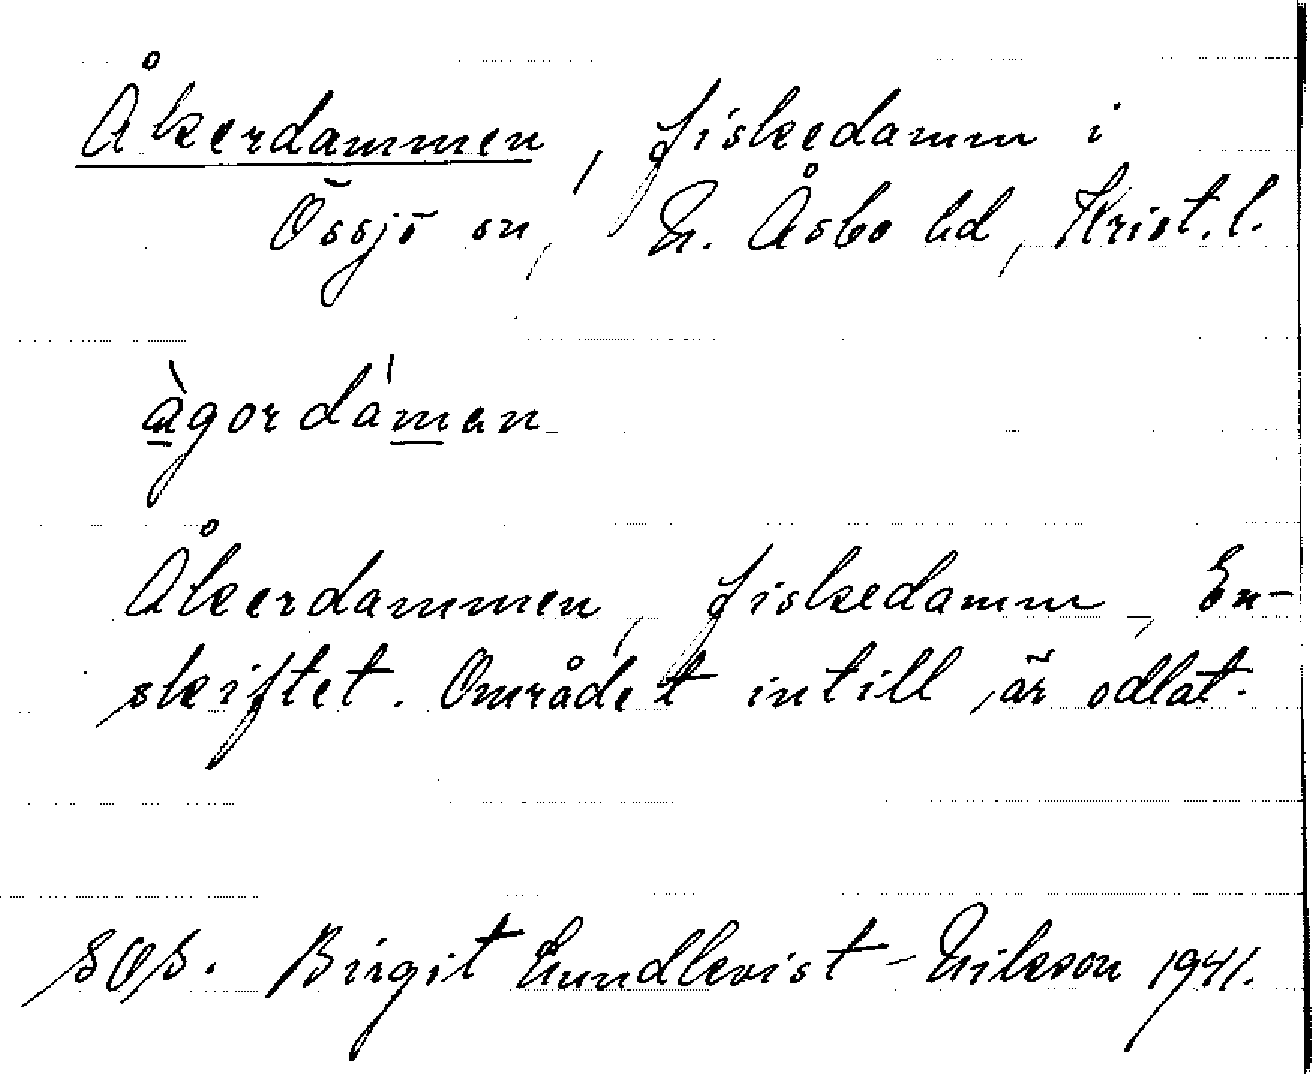 Åkerdammen, fiskedamm i
Össjö sn, N. Åsbo hd, Krist. l.
àgordámen
Åkerdammen, fiskedamm, En-
skiftet. Området intill är odlat.
SOS. Birgit Lundkvist-Nilsson 1941.